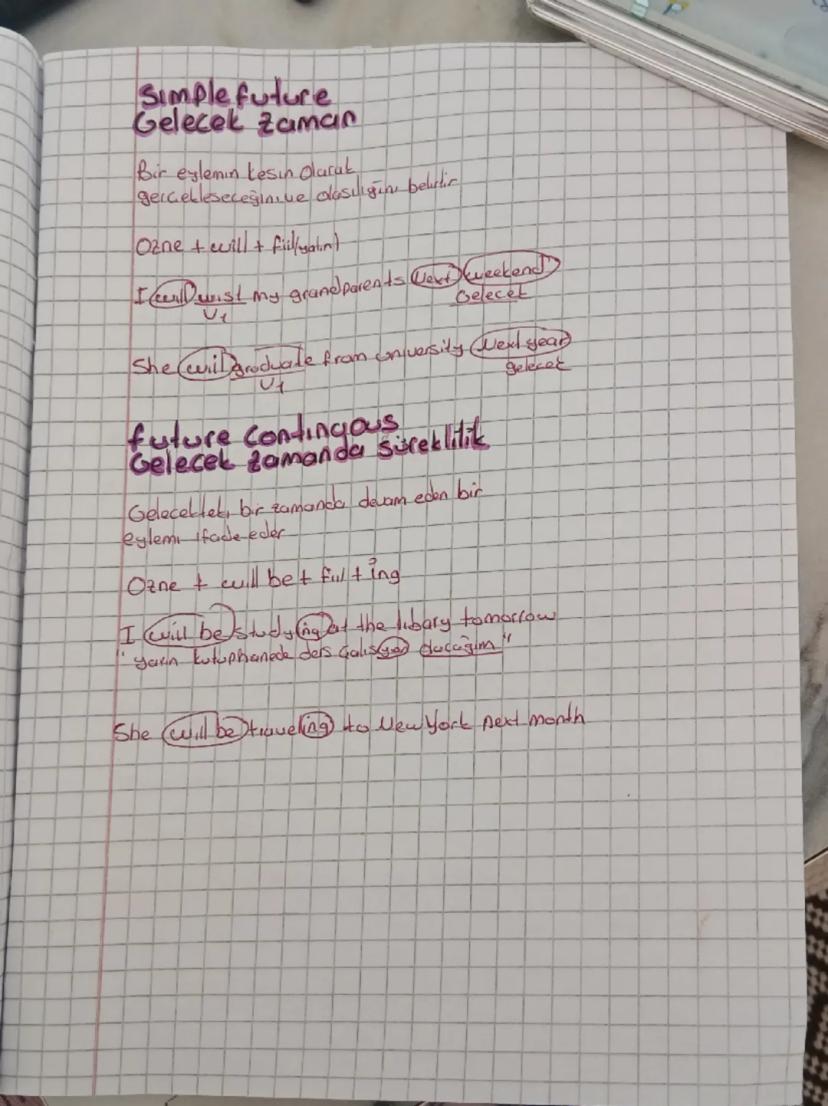 Simple future
Gelecek zaman
Bir eylemin kesin olarak
gerçekleseceğini ve olasılığını belirtir
Ozne + will + fiil(yalın)
I will visit my grandparents Next weekend
V1
Gelecek
She will graduate from university Next year
V1
gelecek
future contingous
Gelecek zamanda süreklilik
Gelecekteki bir zamanda devam eden bir
eylemi ifade eder
Ozne + will be + fiil + ing
I will be studying at the libary tomorrow
"yarın kutuphanede ders Galısıyor olacağım"
She will be traveling to New York next month